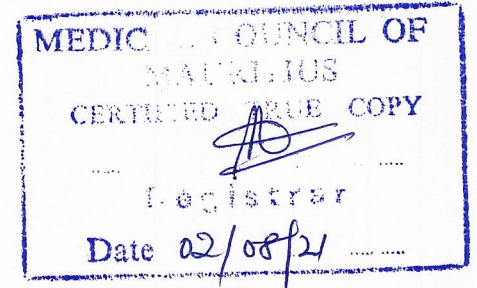 MEDICAL COUNCIL OF
MAURITIUS
CERTIFIED TRUE COPY
Registrar
Date 02/08/21